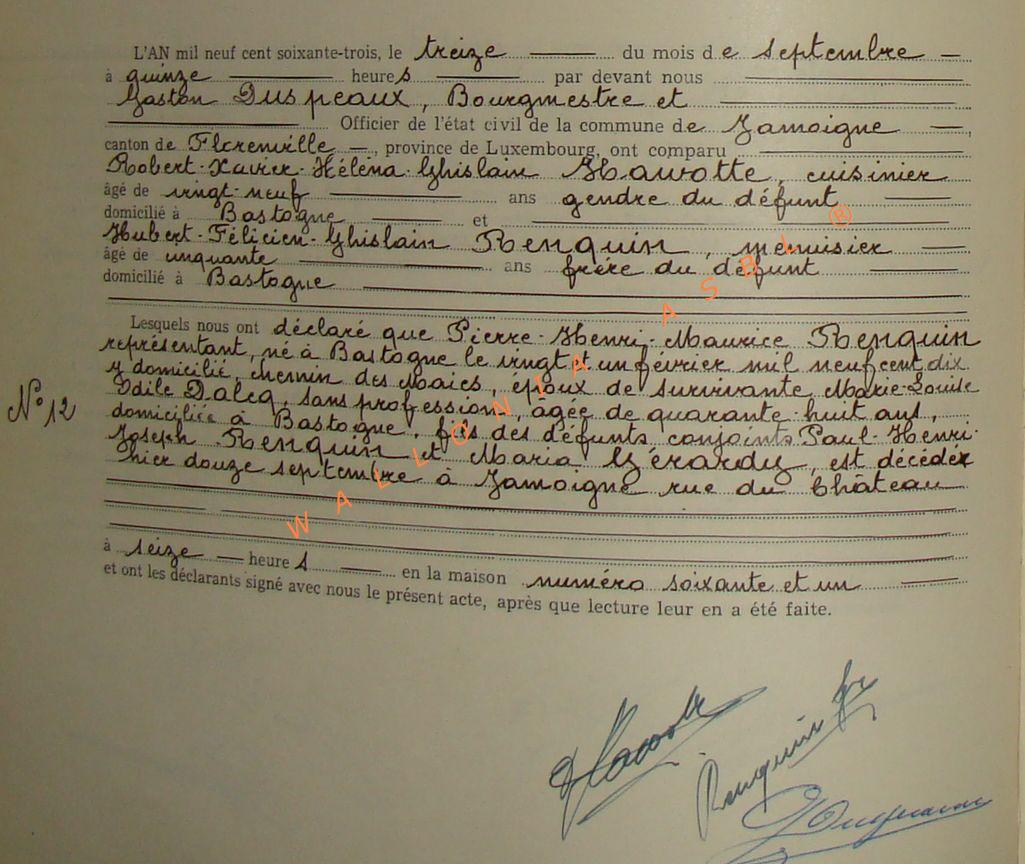 L'AN mil neuf cent soixante-trois, le treize du mois de septembre
à quinze heures par devant nous
Gaston Duspeaux, Bourgmestre et
Officier de l'état civil de la commune de Jamoigne,
canton de Florenville, province de Luxembourg, ont comparu
Robert-Xavier-Héléna-Ghislain Hawotte, cuisinier
âgé de vingt-neuf ans gendre du défunt
domicilié à Bastogne et
Hubert-Félicien-Ghislain Renquin, menuisier
âgé de cinquante ans frère du défunt
domicilié à Bastogne
Lesquels nous ont déclaré que Pierre-Henri-Maurice Renquin
représentant, né à Bastogne le vingt et un février mil neuf cent dix
y domicilié, chemin des Maies, époux de survivante Marie-Louise
Odile Dalcq, sans profession, âgée de quarante-huit ans,
N° 12
domiciliée à Bastogne, fils des défunts conjoints Paul-Henri-
Joseph Renquin et Maria Gérardy, est décédé
hier douze septembre à Jamoigne rue du Château
à seize heures en la maison numéro soixante et un
et ont les déclarants signé avec nous le présent acte, après que lecture leur en a été faite.
Hawotte
Renquin
WALLONIA ASBL ®